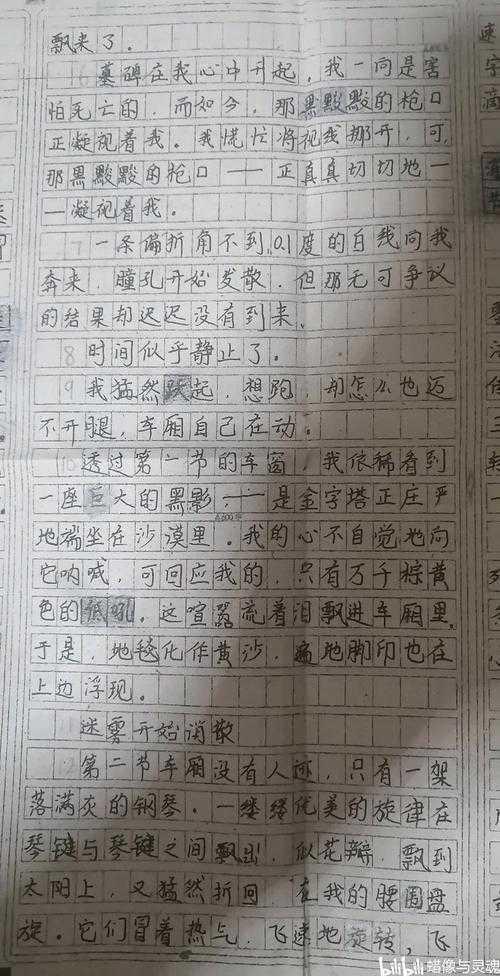 飘来了。
墓碑在我心中升起，我一向是害
怕死亡的，而如今，那黑黢黢的枪口
正凝视着我。我慌忙将视线挪开，可
那黑黢黢的枪口——正真真切切地—
—凝视着我。
7 一条偏折角不到0.1度的白线向我
奔来，瞳孔开始发散，但那无可争议
的结果却迟迟没有到来。
8 时间似乎静止了。
9 我猛然跃起，想跑，却怎么也迈
不开腿，车厢自己在动。
10 透过第一节的车窗，我依稀看到
一座巨大的黑影，——是金字塔正庄严
地端坐在沙漠里。我的心不自觉地向
它呐喊，可回应我的，只有万千棕黄
色的低吼。这喧嚣流着泪飘进车厢里，
于是，地毯化作黄沙，遍地脚印也在
上边浮现。
11 迷雾开始消散
12 第二节车厢没有人烟，只有一架
落满灰的钢琴。一缕缕优美的旋律在
琴键与琴键之间飘出，似花瓣，飘到
太阳上，又猛然折回，在我的腰围盘
旋。它们冒着热气，飞速地旋转，飞
速
字
滴
bilibili 蜡像与灵魂